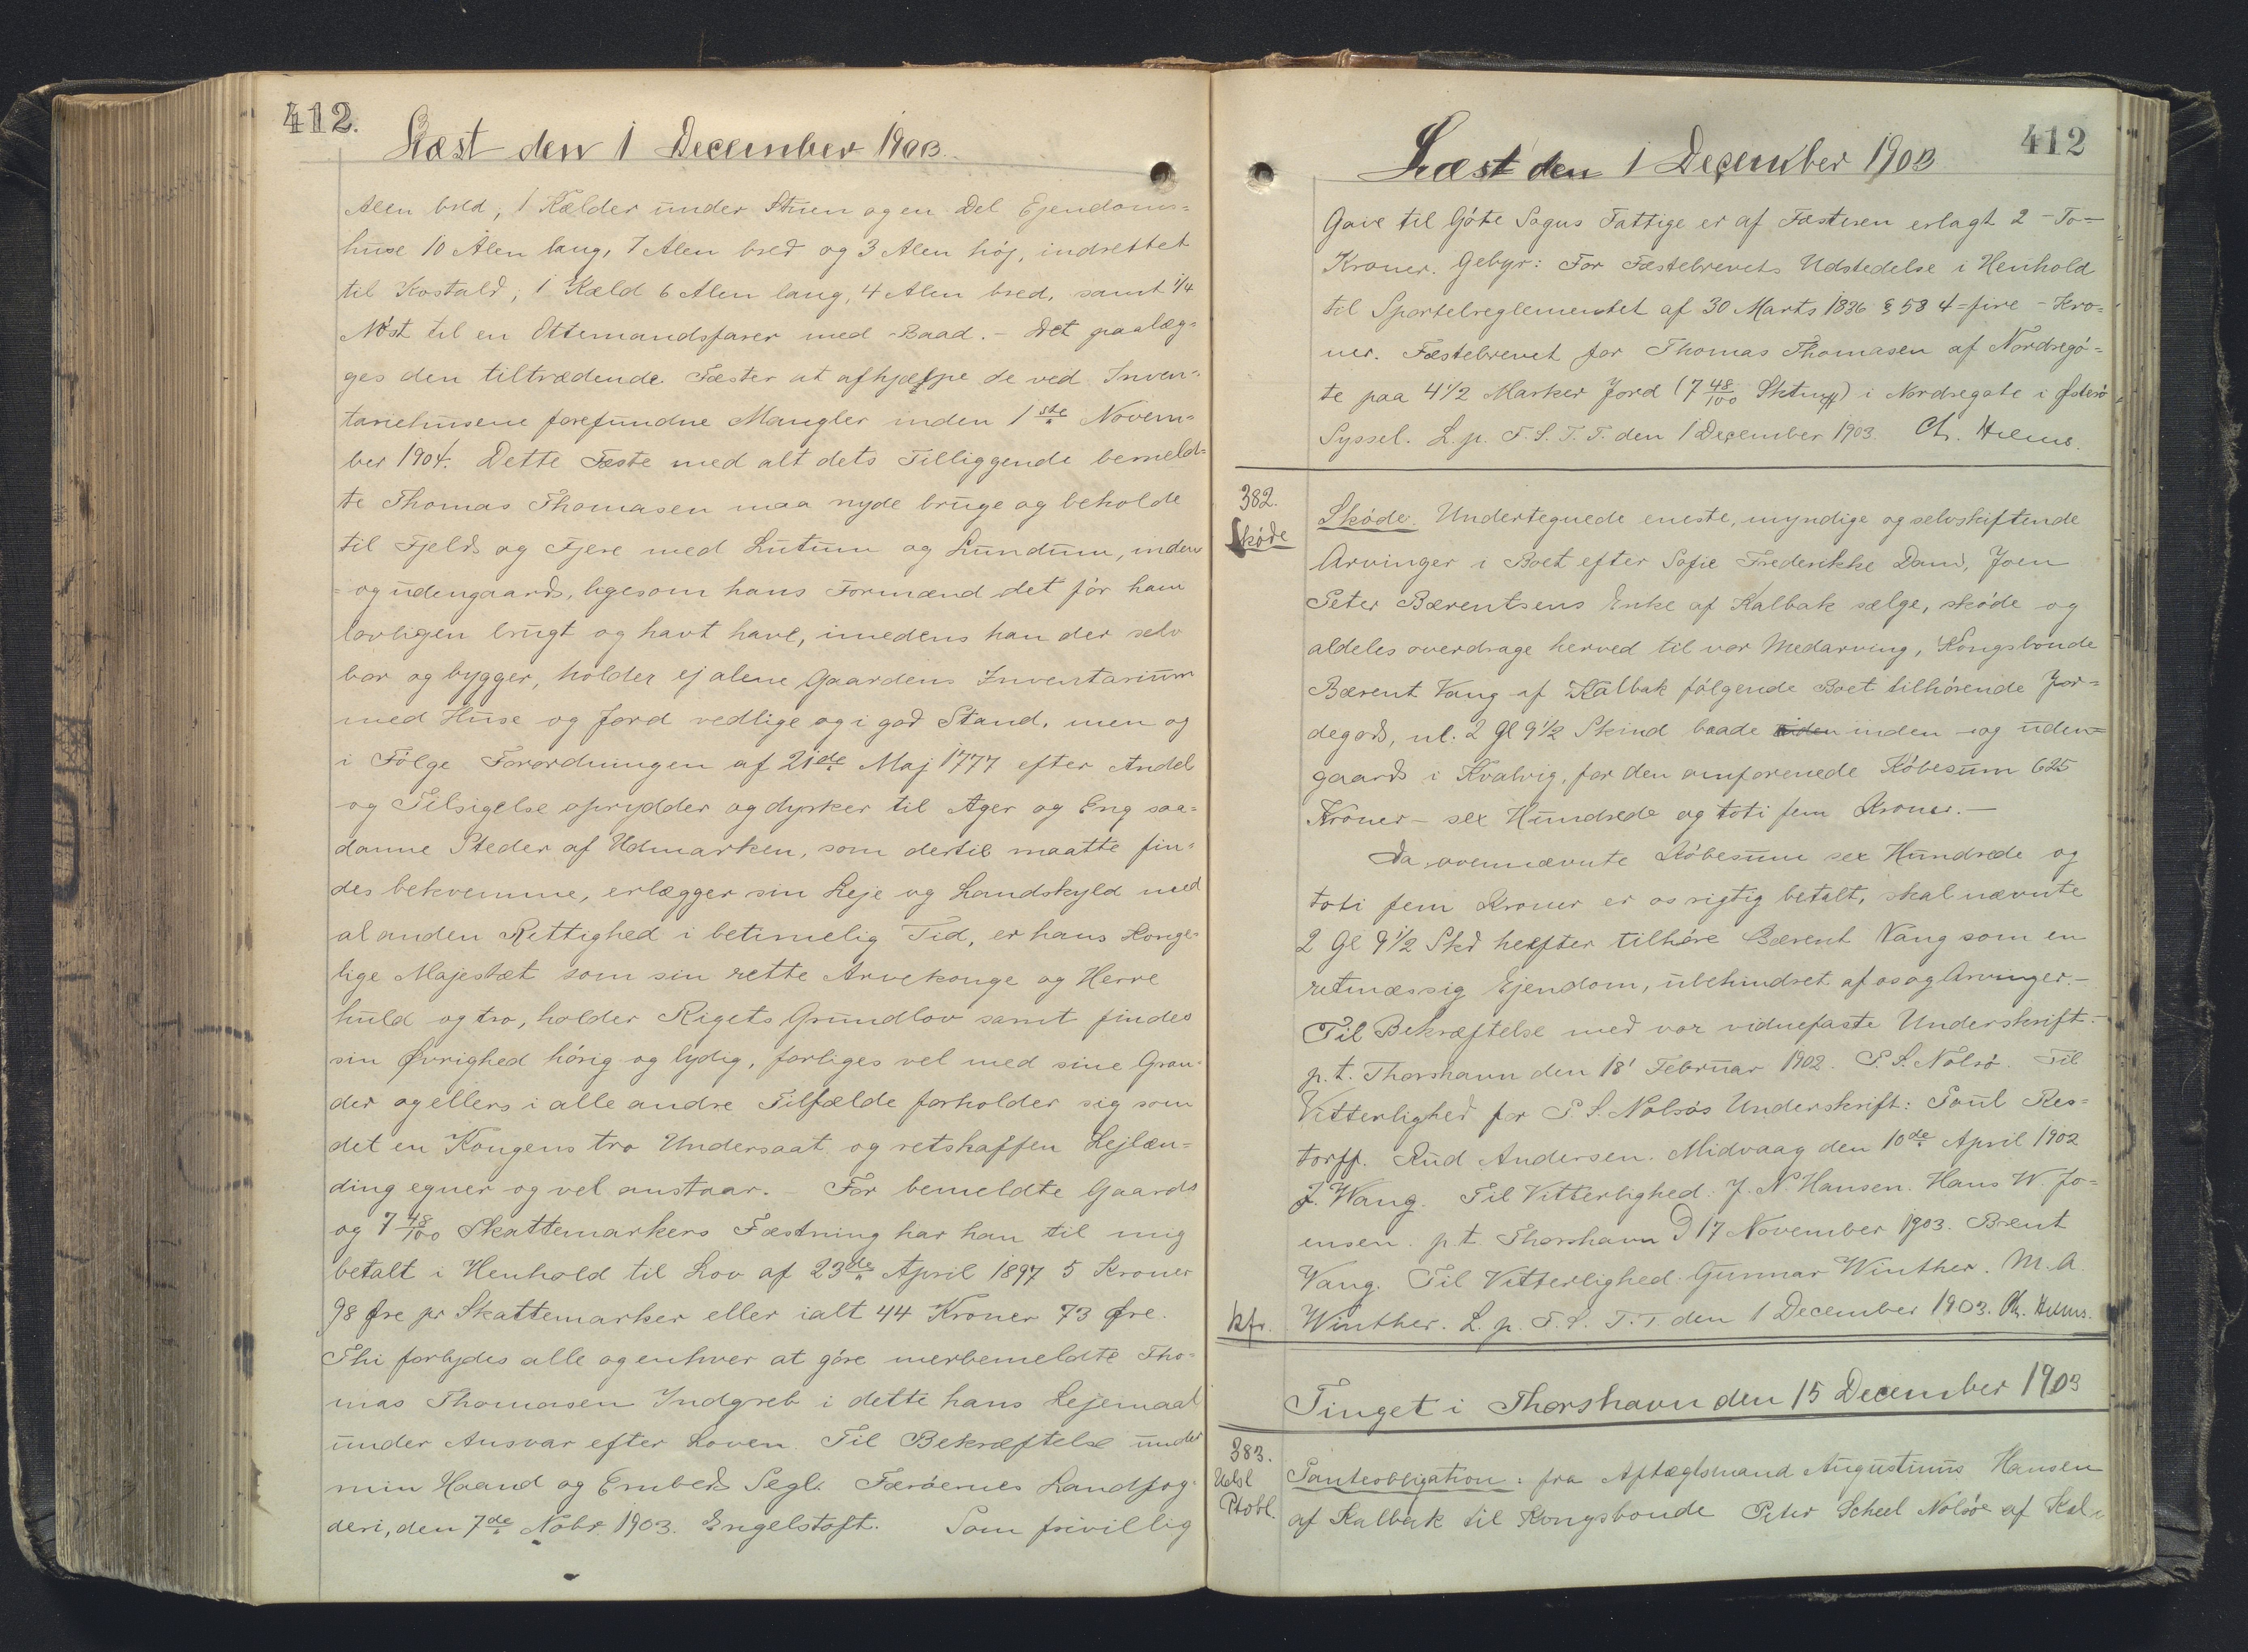 412.
Læst den 1 December 1903.
Alen bred, 1 Kælder under Stuen og en Del Ejendoms=
huse 10 Alen lang, 7 Alen bred og 3 Alen høj, indrettet
til Kostald; 1 Kæld 6 Alen lang, 4 Alen bred, samt 1/4
Nøst til en Ottemandsfarer med Baad. - Det paalæg-
ges den tiltrædende Fæster at afhjælpe de ved Inven-
tariehusene forefundne Mangler inden 1ste Novem=
ber 1904. Dette Fæste med alt dets Tilliggende bemeld=
te Thomas Thomasen maa nyde bruge og beholde
til Fjelds og Fjere med Lutum og Lundum, inden
= og udengaards, ligesom hans Formænd det før ham
lovligen brugt og havt have, imedens han der selv
bor og bygger, holder ej alene Gaardens Inventarium
med Huse og Jord vedlige og i god Stand, men og
i Følge Forordningen af 21de Maj 1777 efter Andel
og Tilsigelse oprydder og dyrker til Ager og Eng saa=
danne Steder af Udmarken, som dertil maatte fin=
des bekvemme, erlægger sin Leje og Landskyld med
al anden Rettighed i betimelig Tid, er hans Konge-
lige Majestæt som sin rette Arvekonge og Herre
huld og tro, holder Rigets Grundlov samt findes
sin Øvrighed hørig og lydig, forliges vel med sine Gran-
der og ellers i alle andre Tilfælde forholder sig som
det en Kongens tro Undersaat og retskaffen Lejlæn=
ding egner og vel anstaar. For bemeldte Gaards
og 7 48/100 Skattemarkers Fæstning har han til mig
betalt i Henhold til Lov af 23de April 1897 5 Kroner
98 Øre pr Skattemarker eller ialt 44 Kroner 73 Øre.
Thi forbydes alle og enhver at gøre merbemeldte Tho=
mas Thomasen Indgreb i dette hans Lejemaal
under Ansvar efter Loven. Til Bekræftelse under
min Haand og Embeds Segl. Færøernes Landfog-
deri, den 7de Nobr. 1903. Engelstoft. Som frivillig
412
Læst den 1 December 1903
Gave til Gøte Sogns Fattige er af Fæsteren erlagt 2 - To -
Kroner. Gebyr: For Fæstebrevets Udstedelse i Henhold
til Sportelreglementet af 30 Marts 1836 § 58 4 - fire - Kro=
ner. Fæstebrevet for Thomas Thomasen af Nordregø=
te paa 4 1/2 Marker Jord (7 48/100 Sktmk) i Nordregøte i Østerø
Syssel. L. p. F. S. T. T. den 1 December 1903. Ch. Helms.
382.
Skøde
Skøde. Undertegnede eneste, myndige og selvskiftende
Arvinger i Boet efter Sofie Frederikke Dam, Joen
Peter Bærentsens Enke af Kalbak sælge, skøde og
aldeles overdrage herved til vor Medarving, Kongsbonde
Bærent Vang af Kalbak følgende Boet tilhørende Jor=
degods, nl. 2 Gl 9 1/2 Skind baade uden inden - og uden=
gaards i Kvalvig, for den omforenede Købesum 625
Kroner - sex Hundrede og toti fem Kroner. -
Da ovennævnte Købesum sex Hundrede og
toti fem Kroner er os rigtig betalt, skal nævnte
2 Gl 9 1/2 Skd herefter tilhøre Bærent Vang som en
retmæssig Ejendom, ubehindret af os og Arvinger. -
Til Bekræftelse med vor vidnefaste Underskrift: -
p. t. Thorshavn den 18' Februar 1902. P. S. Nolsø. Til
Vitterlighed for P S. Nolsøs Underskrift: Poul Res=
torff. Rud Andersen. Midvaag den 10de April 1902
J. Wang. Til Vitterlighed: J. N. Hansen. Hans W. Jo=
ensen. p. t. Thorshavn D 17 November 1903. Brent
Vang. Til Vitterlighed: Gunnar Winther. M. A.
kfr.
Winther. L. p. F. S. T. T den 1 December 1903. Ch. Helms.
Tinget i Thorshavn den 15 December 1903
383.
Udsl
Ptobl.
Panteobligation: fra Aftægtsmand Augustinus Hansen
af Kalbak til Kongsbonde Peter Scheel Nolsøe af Kal=